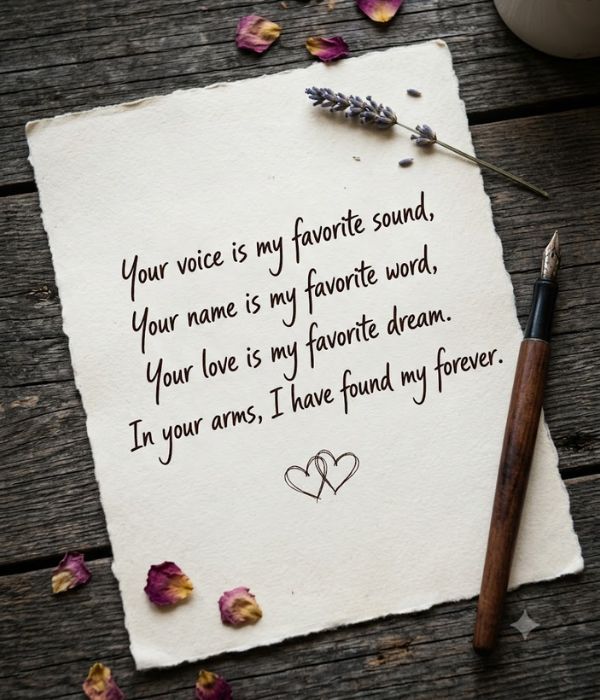 Your voice is my favorite sound,
Your name is my favorite word,
Your love is my favorite dream.
In your arms, I have found my forever.